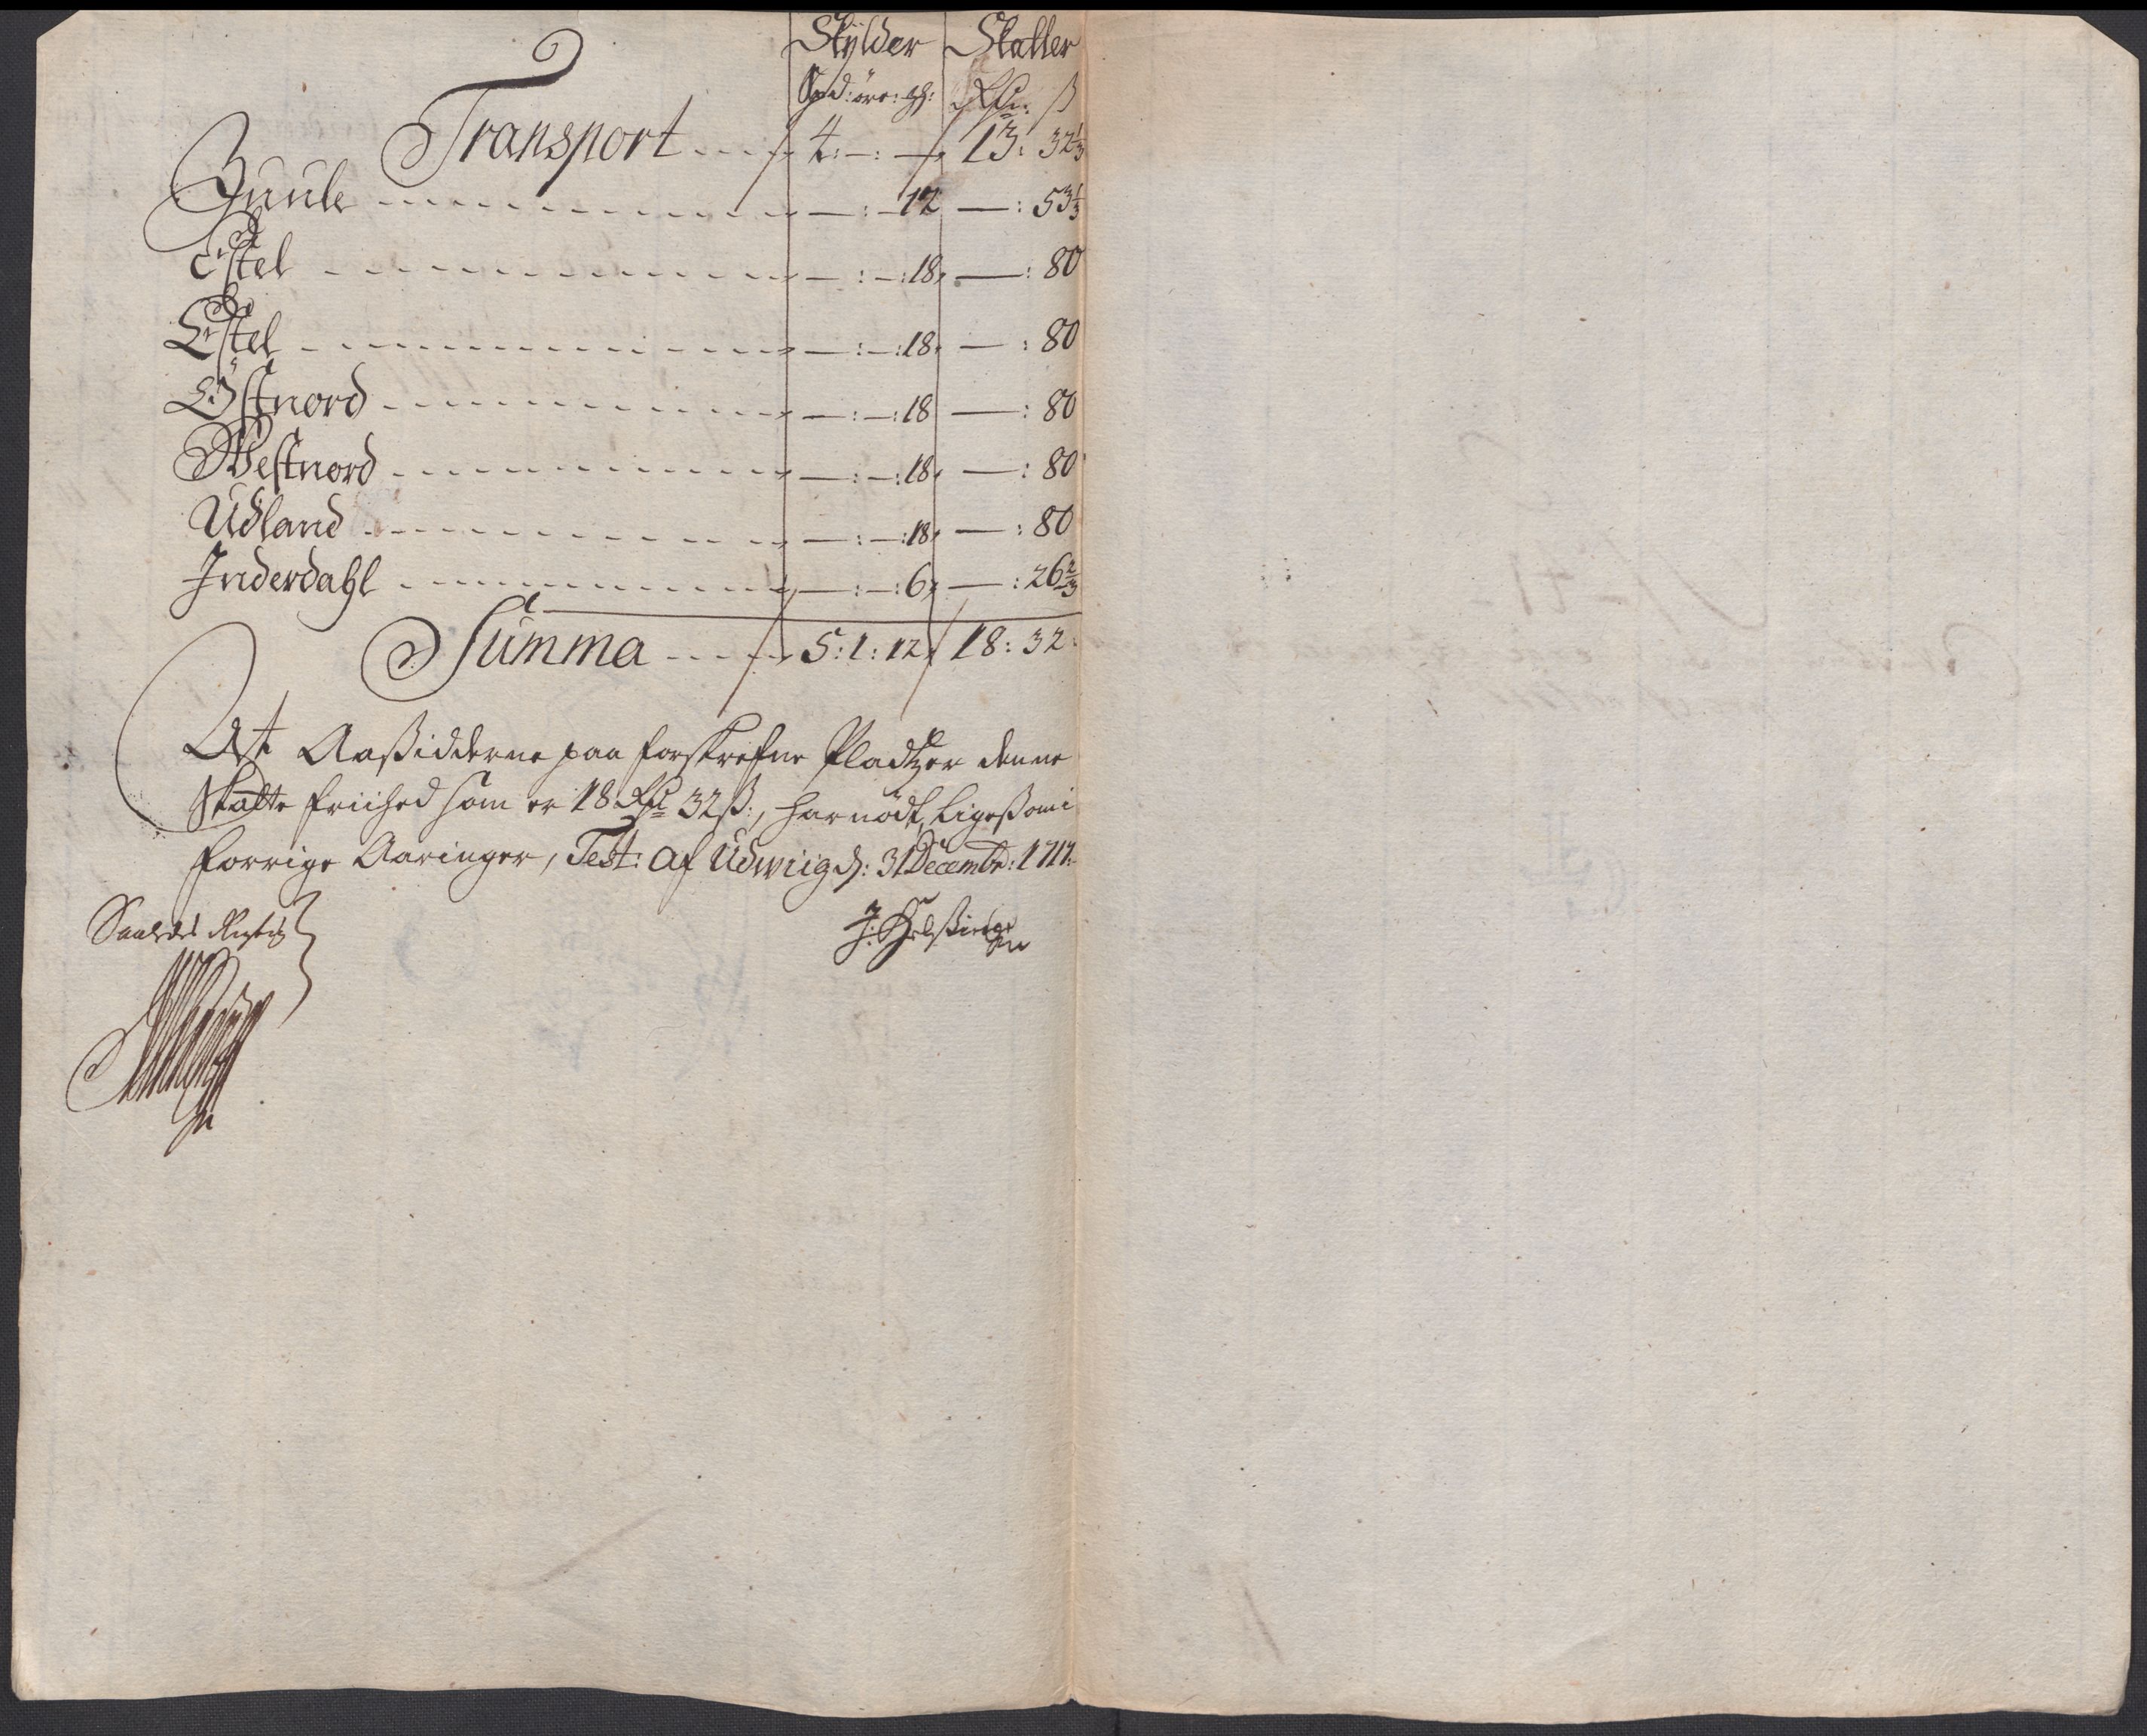 Skylder Skatter
Spd: øre: ₰: Rdr: ß
Transport - - - 4: —: — 13: 32 1/3
Juule - - - — : — 12 — : 53 1/3
Estel - - - — : — : 18, — : 80
Estel - - - — : — : 18, — : 80
Østnord - - - — : — : 18 — : 80
Westnord - - - — : — : 18, — : 80
Udland - - - — : — : 18, — : 80
Inderdahl - - - — : — : 6, — : 26 2/3
Summa - - - 5: 1: 12, 18: 32:
At Aaßidderne paa forskrefne Pladtzer denne
Skatte friihed som er 18 Rdr 32 ß:, har nødt, ligeßom i
forrige Aaringer, Test: Af Udwiig d: 31 Decembr: 1717:
Saaledes Rigtig
J: Helßing